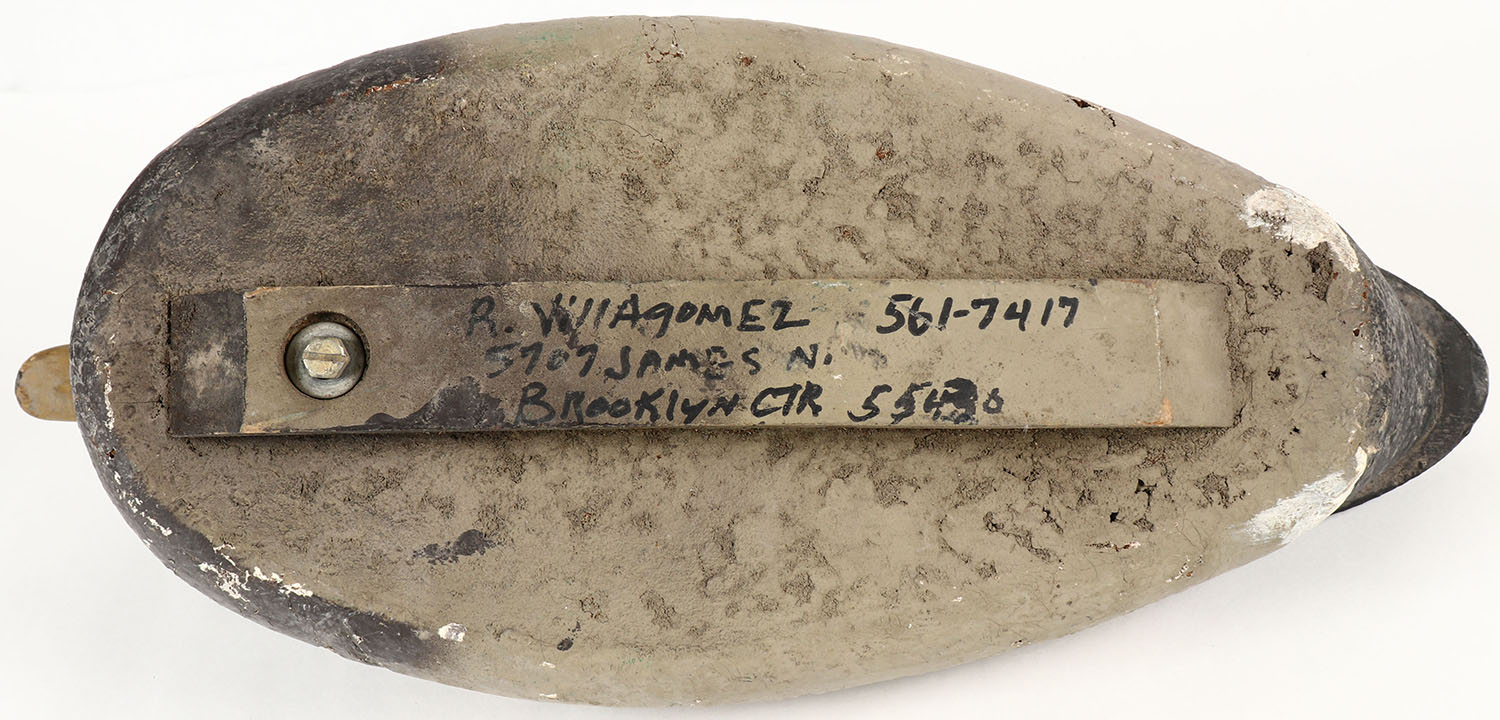 R. VillAgomEZ 561-7417
5707 JAMES N.
BROOKlyN CTR 55430